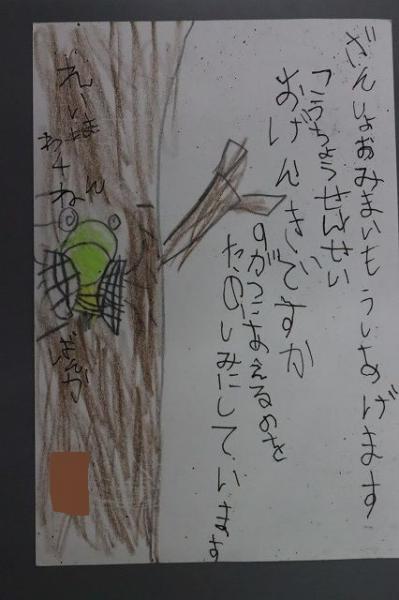 ざんしょおみまいもうしあげます
こうちょうせんせい
おげんきですか
9がつにあえるのを
たのしみにしています